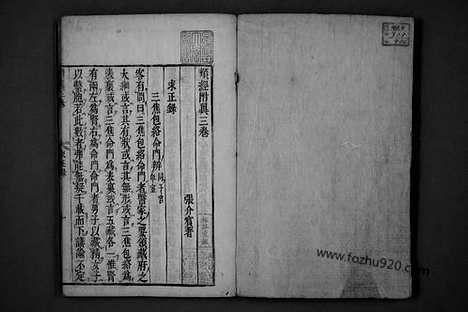 類經附翼三卷
張介賓著
求正錄
三焦包絡命門辨
客有問曰三焦包絡命門者醫家之要領臟府之
大綱或言其有狀或言其無形或言三焦包絡為
表裏或言三焦命門為表裏或言五臟各一惟腎
有兩左為腎右為命門命門者男子以藏精女子
以繫胞若此數者弗能無疑千載而下議論不定
www.fozhu920.com